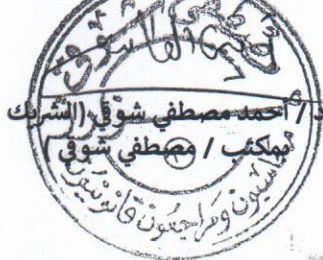 مصطفى شوقى
د / أحمد مصطفي شوقي (الشريك
بمكتب / مصطفي شوقي )
محاسبون ومراجعون قانونيون